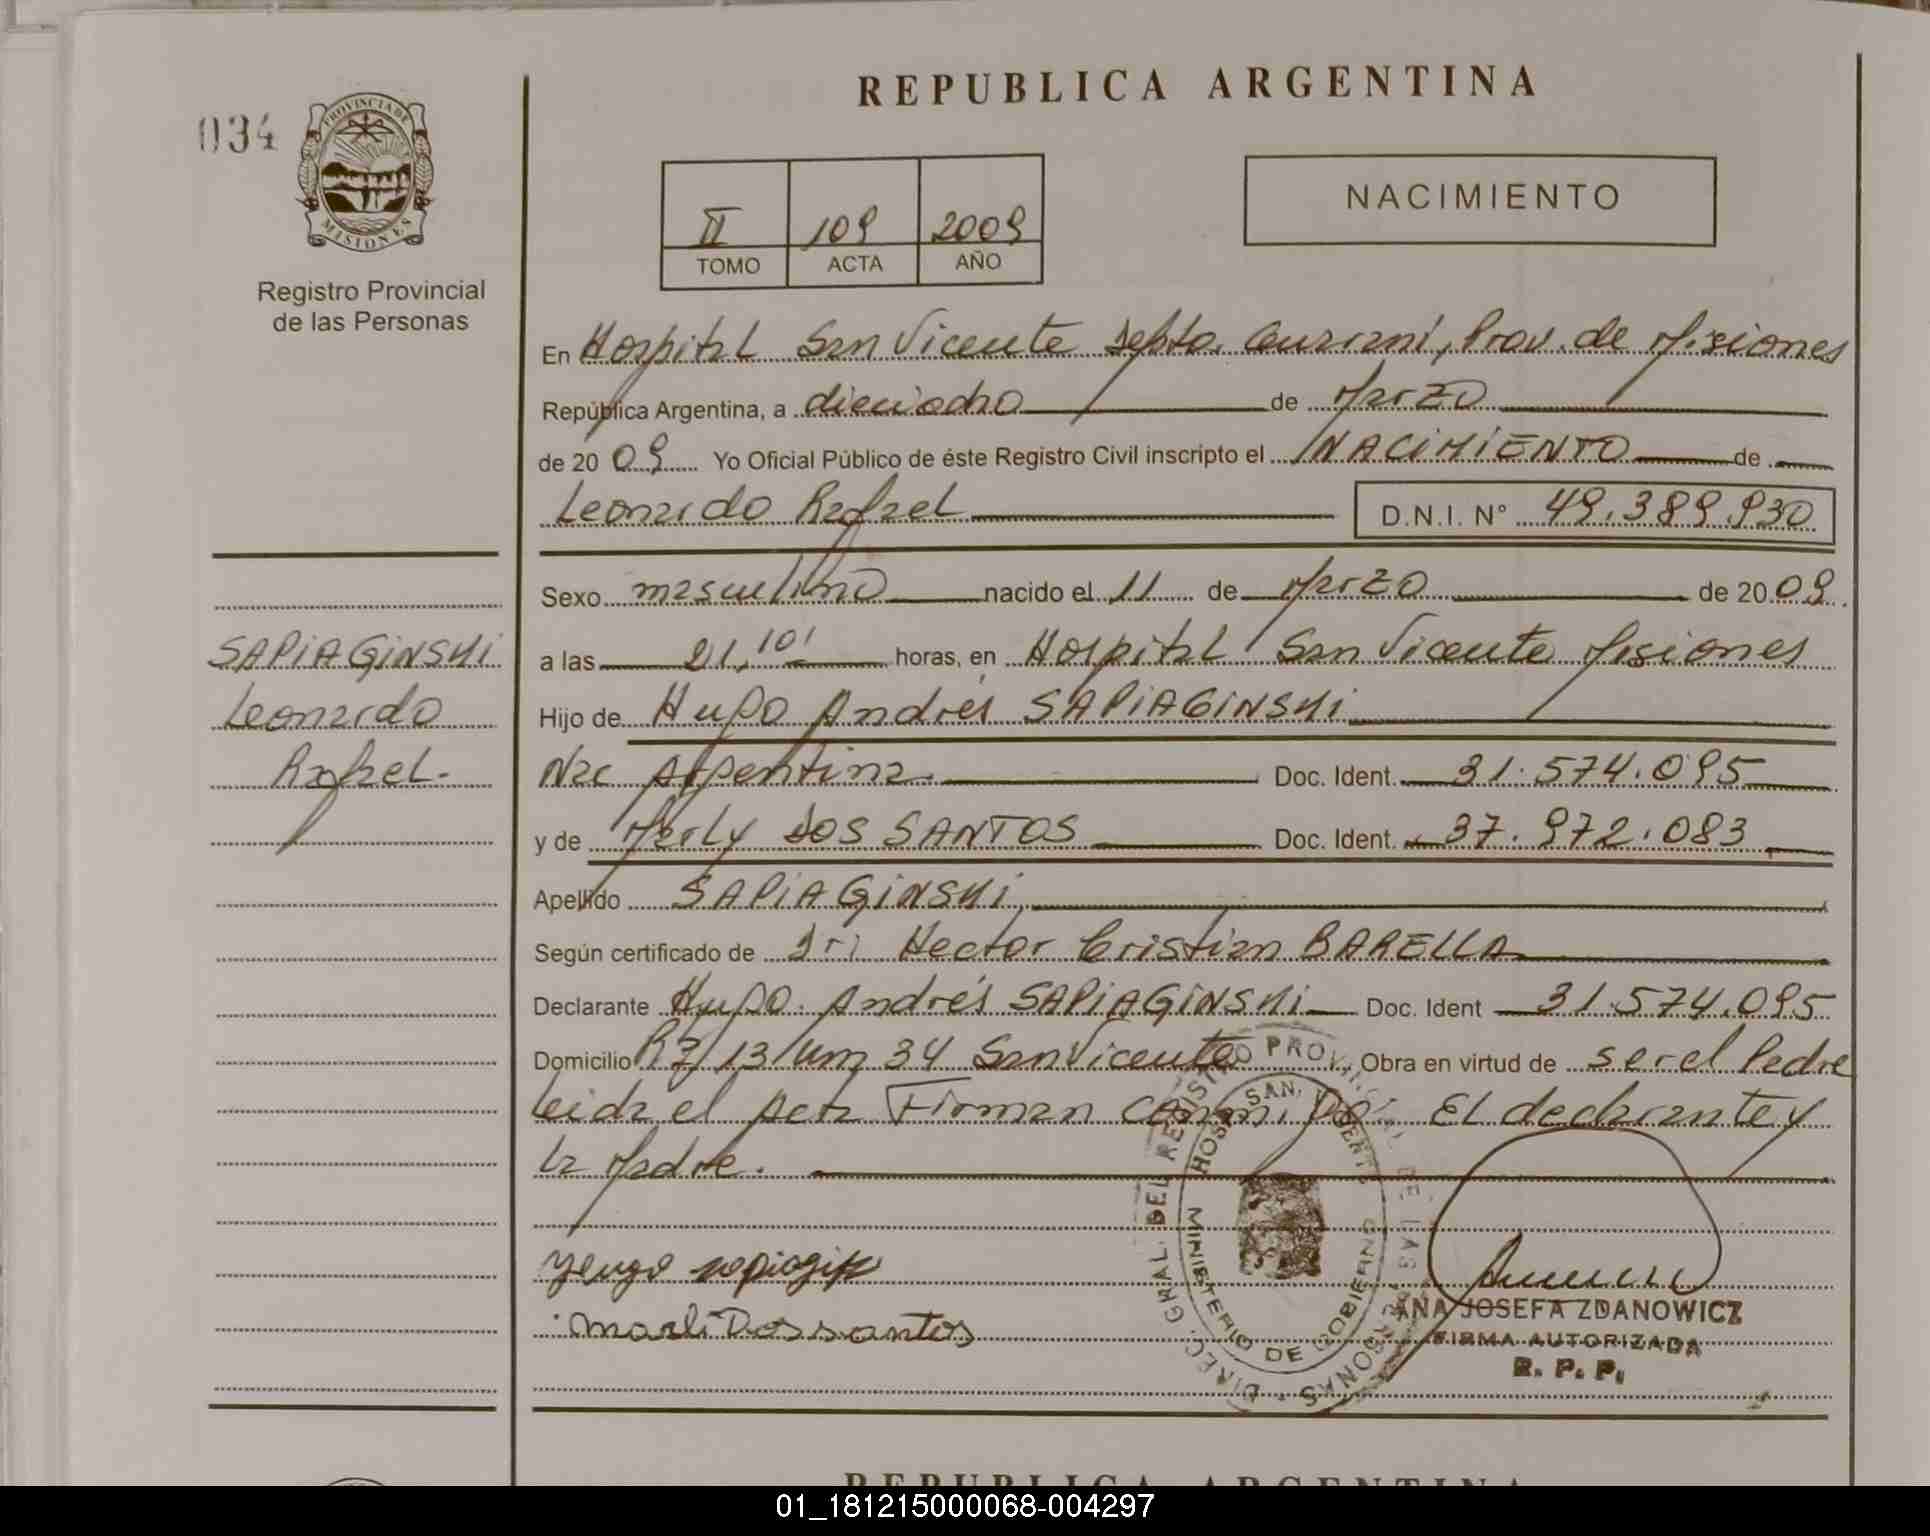 REPUBLICA ARGENTINA
034
PROVINCIA DE
MISIONES
Registro Provincial
de las Personas
II 109 2009
TOMO ACTA AÑO
NACIMIENTO
En Hospital San Vicente Depto. Guaraní, Prov. de Misiones
República Argentina, a dieciocho de Marzo
de 20 09 Yo Oficial Público de éste Registro Civil inscripto el NACIMIENTO de
Leonardo Rafael D.N.I. N° 49.389.930
Sexo masculino nacido el 11 de Marzo de 20 09
a las 21,10' horas, en Hospital San Vicente Misiones
Hijo de Hugo Andrés SAPIAGINSKI
Nac Argentina. Doc. Ident. 31.574.095
y de Merly DOS SANTOS Doc. Ident. 37.972.083
Apellido SAPIAGINSKI
Según certificado de Dr: Hector Cristian BARELLA
Declarante Hugo Andrés SAPIAGINSKI Doc. Ident 31.574.095
Domicilio R7/13 Km 34 San Vicente Obra en virtud de ser el Padre
Leida el Acta Firman conmigo El declarante y
la Madre.
SAPIAGINSKI
Leonardo
Rafael.
marli Dos santos
DIREC. GRAL. DEL REGISTRO PROVINCIAL DE LAS PERSONAS
HOSP. SAN VICENTE
MINISTERIO DE GOBIERNO
ANA JOSEFA ZDANOWICZ
FIRMA AUTORIZADA
R. P. P.
REPUBLICA ARGENTINA
01_181215000068-004297